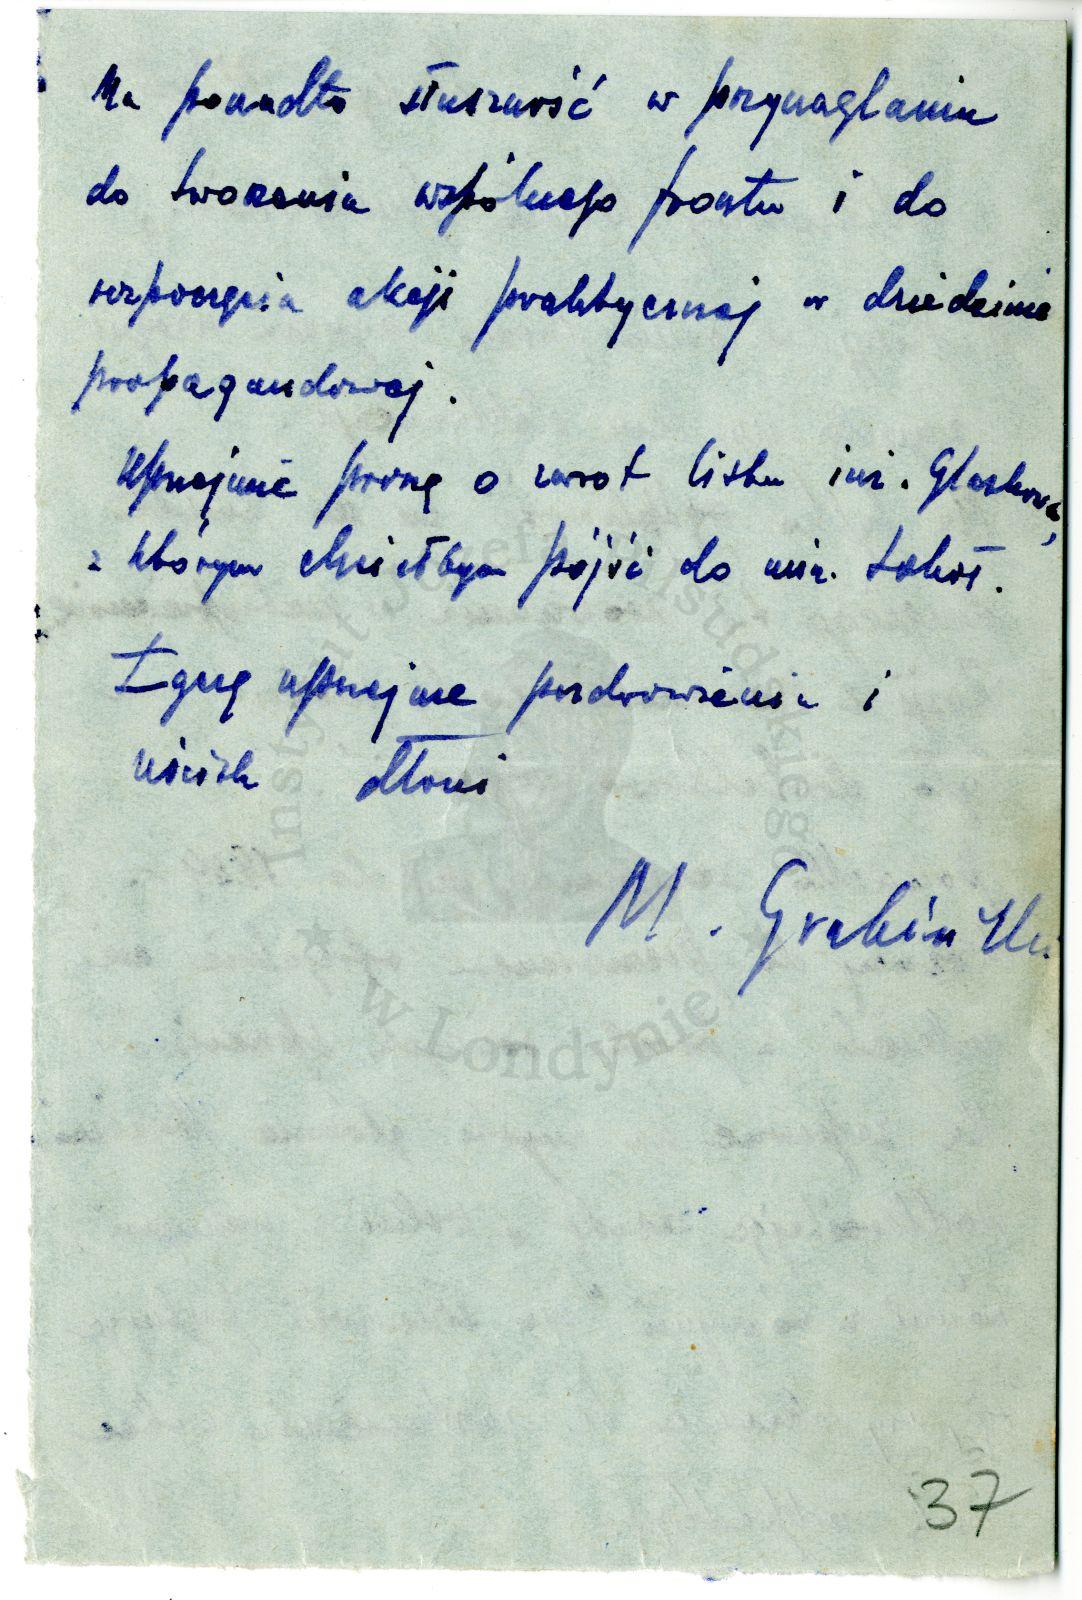 Ma ponadto słuszność w przynaglaniu
do tworzenia wspólnego frontu i do
rozpoczęcia akcji praktycznej w dziedzinie
propagandowej.
Uprzejmie proszę o zwrot listu inż. Glaskova,
z którym chciałbym pójść do min. Sokoł.
Łączę uprzejme pozdrowienia i
uścisk dłoni
M. Grabiński
37
Instytut Józefa Piłsudskiego
w Londynie